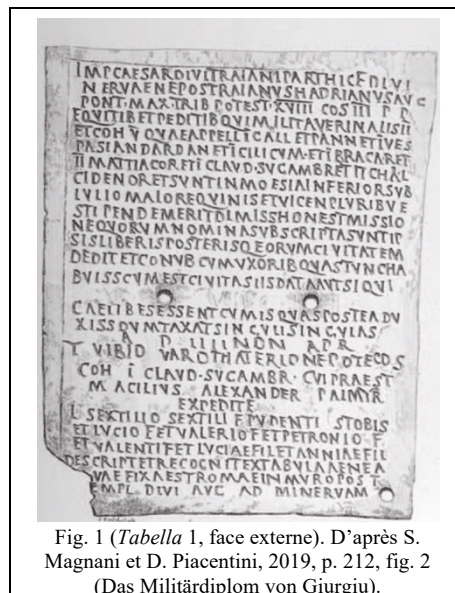 IMPCAESARDIVITRAIANIPARTHICFDIVI
NERVAENEPOSTRAIANVSHADRIANVSAVG
PONT·MAX·TRIBPOTEST·XVIIII COSIII P P
EQVITIBETPEDITIBQVIMILITAVERINALISII
ETCOHV QVAEAPPELLGALLETPANNETIVES
PASIANDARDANETICILICVM·ETIBRACARET
TIMATTIACORETICLAVD·SVGAMBRETIICHAL
CIDENORETSVNTINMOESIAINFERIORSVB
IVLIOMAIOREQVINISETVICENPLVRIBVE
STIPENDEMERITDIMISSHONESTMISSIO
NEQVORVMNOMINASVBSCRIPTASVNTIP
SISLIBERISPOSTERISQEORVMCIVITATEM
DEDITETCONVBCVMVXORIBQVASTVNCHA
BVISSCVMESTCIVITASIISDATAAVTSIQVI
CAELIBESESSENTCVMISQVASPOSTEADV
XISSDVMTAXATSINGVLISINGVLAS
A D IIIINON APR
T VIBIO VAROTHATERIONEPOTECOS
COH I CLAVD·SVGAMBR·CVIPRAEST
M ACILIVS ALEXANDER PALMYR
EXPEDITE
L SEXTILIO SEXTILI FPVDENTI STOBIS
ETLVCIO FETVALERIOFETPETRONIO F
ETVALENTIFETLVCIAEFILETANNIAEFIL
DESCRIPTETRECOGNITEXTABVLAAENEA
VAEFIXAESTROMAEINMVROPOST
TEMPL DIVI AVG AD MINERVAM
Fig. 1 (Tabella 1, face externe). D'après S.
Magnani et D. Piacentini, 2019, p. 212, fig. 2
(Das Militärdiplom von Giurgiu).